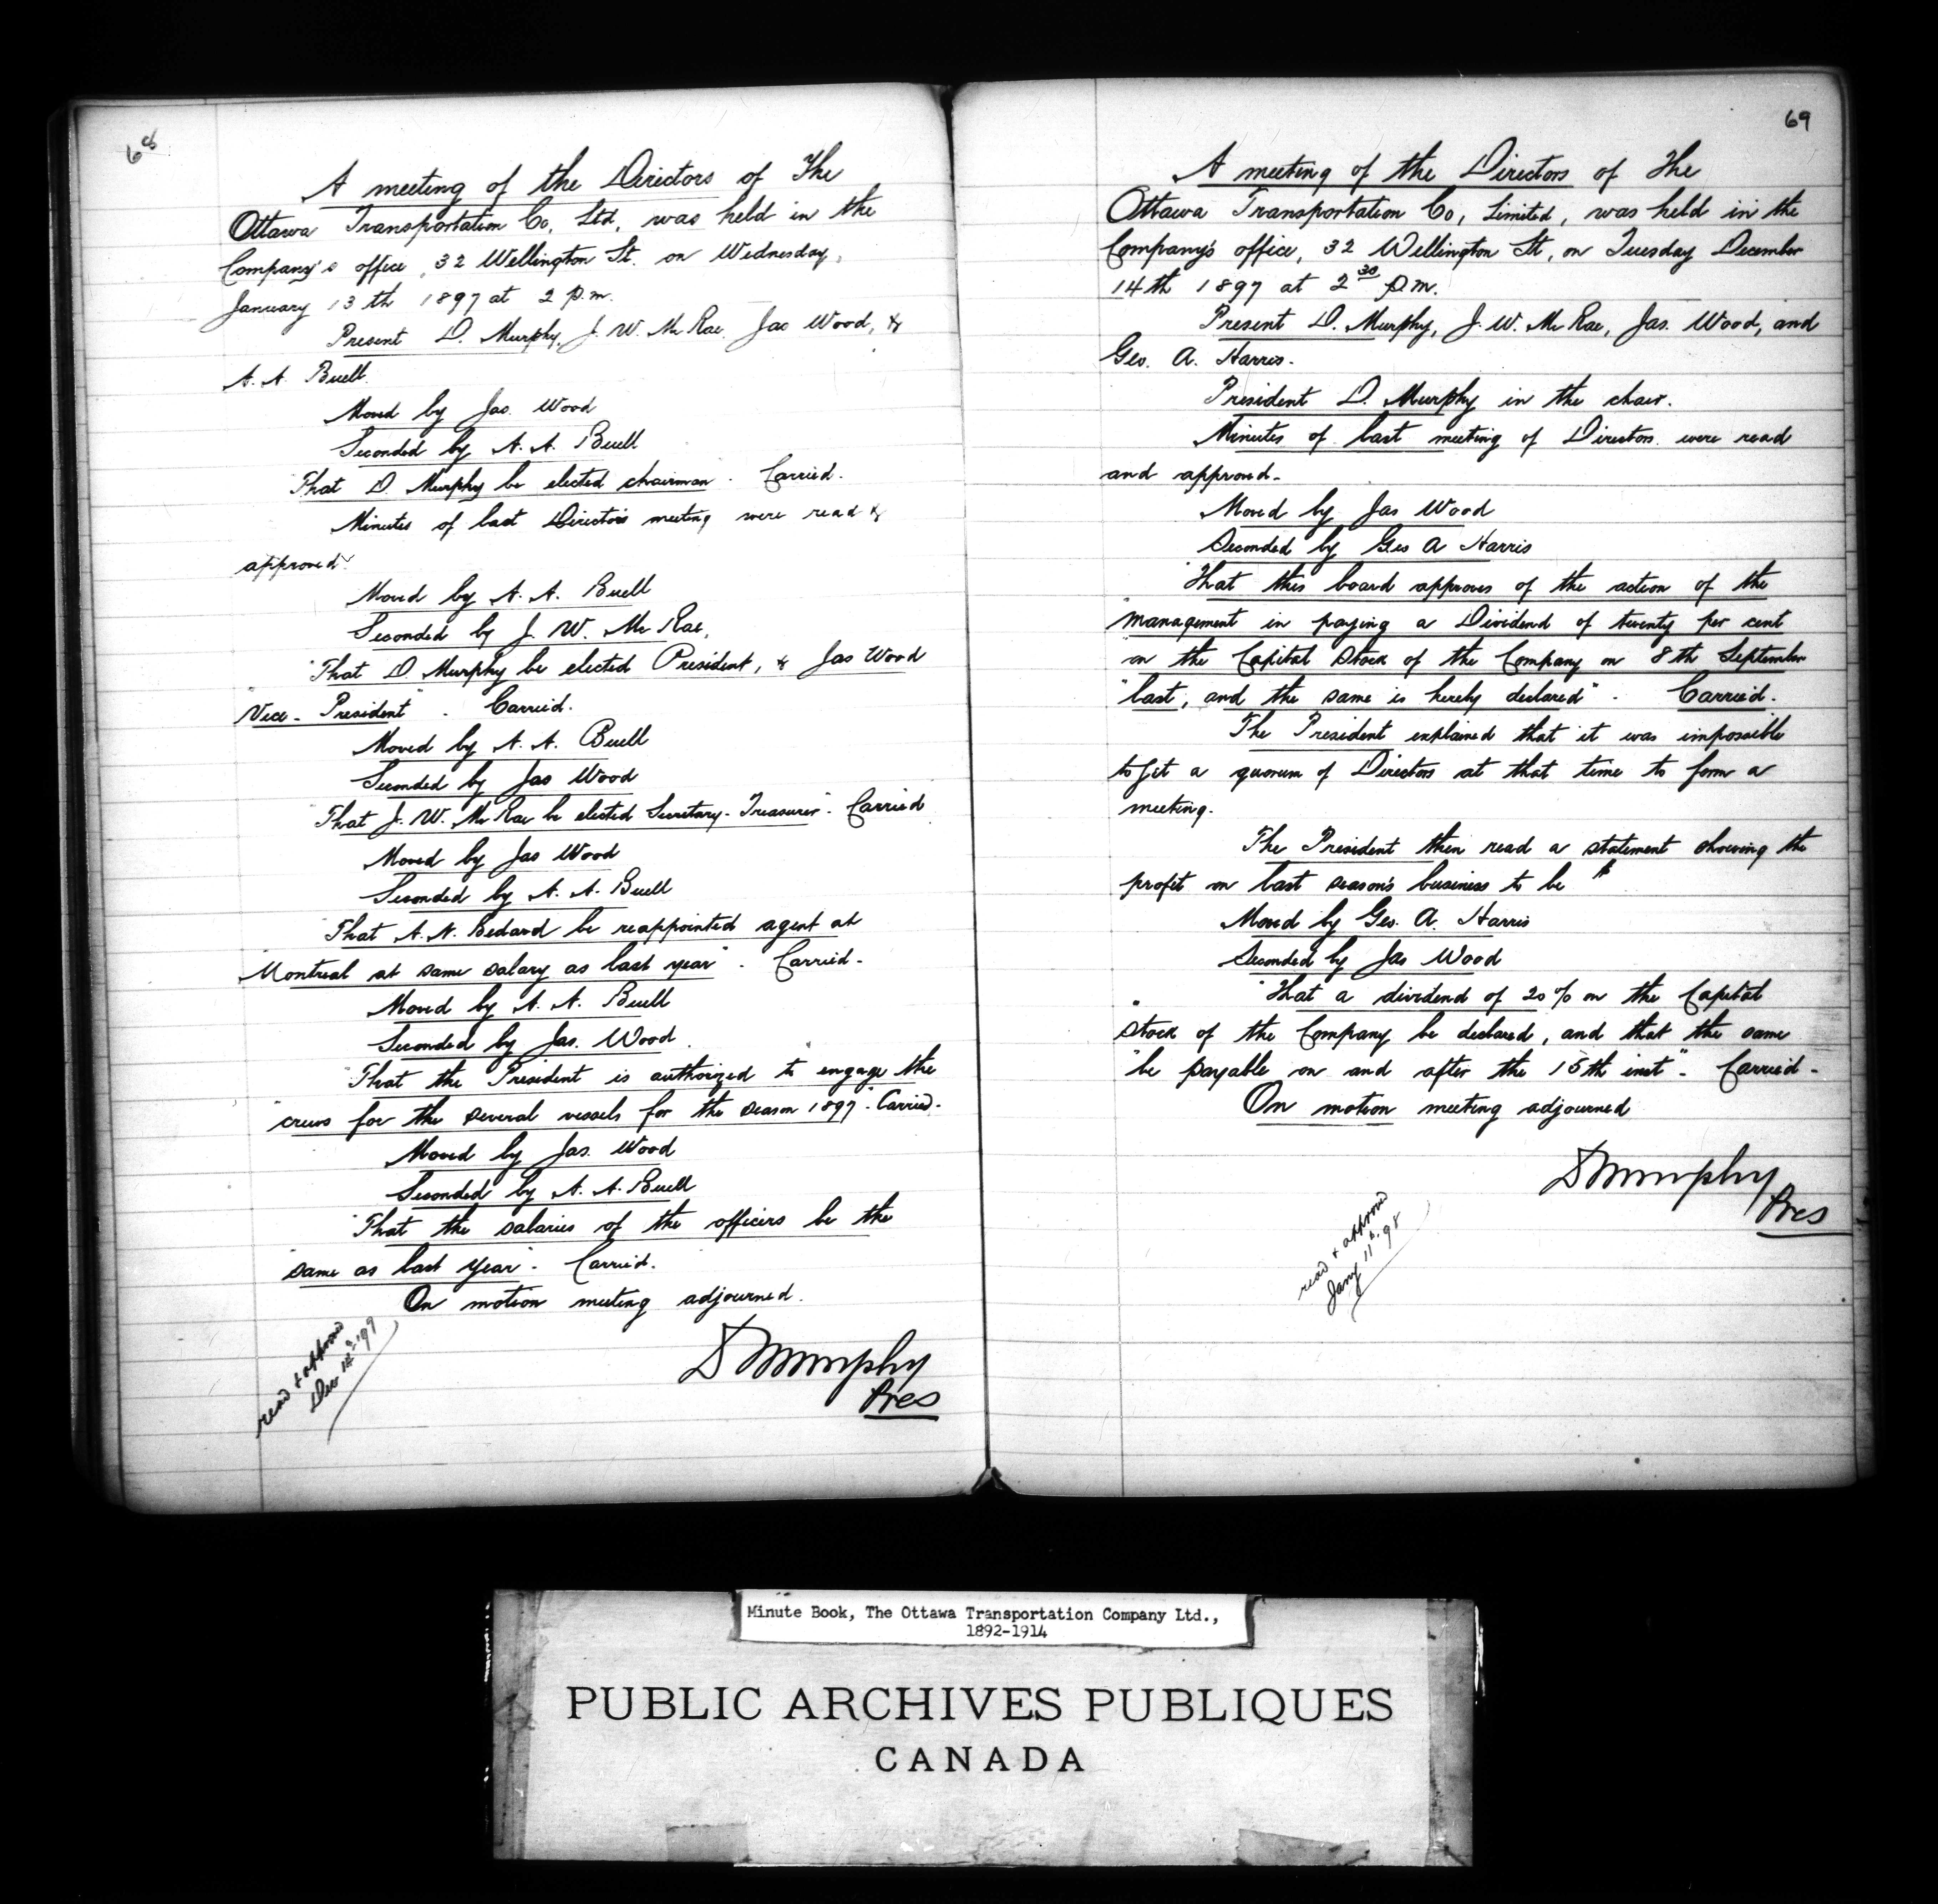 68
A meeting of the Directors of The
Ottawa Transportation Co, Ltd, was held in the
Company's office, 32 Wellington St. on Wednesday,
January 13th 1897 at 2 p.m.
Present D. Murphy, J. W. McRae, Jas Wood, &
A. A. Buell.
Moved by Jas. Wood
Seconded by A. A. Buell
"That D. Murphy be elected chairman". Carried.
Minutes of last Directors meeting were read &
approved.
Moved by A. A. Buell
Seconded by J. W. McRae,
"That D. Murphy be elected President, & Jas Wood
"Vice-President". Carried.
Moved by A. A. Buell
Seconded by Jas Wood
"That J. W. McRae be elected Secretary-Treasurer". Carried
Moved by Jas Wood
Seconded by A. A. Buell
"That A. N. Bedard be reappointed agent at
Montreal at same salary as last year". Carried.
Moved by A. A. Buell
Seconded by Jas. Wood.
"That the President is authorized to engage the
"crews for the several vessels for the season 1897". Carried.
Moved by Jas. Wood
Seconded by A. A. Buell
"That the salaries of the officers be the
"same as last year". Carried.
On motion meeting adjourned.
D Murphy
Pres
read & approved
Dec 14th '97
69
A meeting of the Directors of The
Ottawa Transportation Co, Limited, was held in the
Company's office, 32 Wellington St, on Tuesday December
14th 1897 at 2 30 p.m.
Present D. Murphy, J. W. McRae, Jas. Wood, and
Geo. A. Harris.
President D. Murphy in the chair.
Minutes of last meeting of Directors were read
and approved.
Moved by Jas Wood
Seconded by Geo A Harris
"That this board approves of the action of the
"management in paying a Dividend of twenty per cent
"on the Capital Stock of the Company on 8th September
"last, and the same is hereby declared". Carried.
The President explained that it was impossible
to get a quorum of Directors at that time to form a
meeting.
The President then read a statement showing the
profit on last season's business to be $
Moved by Geo. A. Harris
Seconded by Jas Wood
"That a dividend of 20% on the Capital
"Stock of the Company be declared, and that the same
"be payable on and after the 15th inst". Carried.
On motion meeting adjourned
D Murphy
Pres
read & approved
Jany 11th. 98
Minute Book, The Ottawa Transportation Company Ltd.,
1892-1914
PUBLIC ARCHIVES PUBLIQUES
CANADA